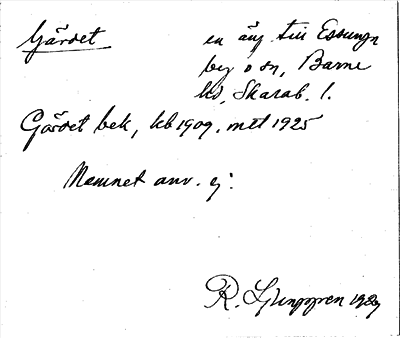 Gärdet
en äg. till Essunga
by o sn, Barne
hd, Skarab. l.
Gärdet bek, kb 1909. mtl 1925
Namnet anv. ej.
R. Ljunggren 1929